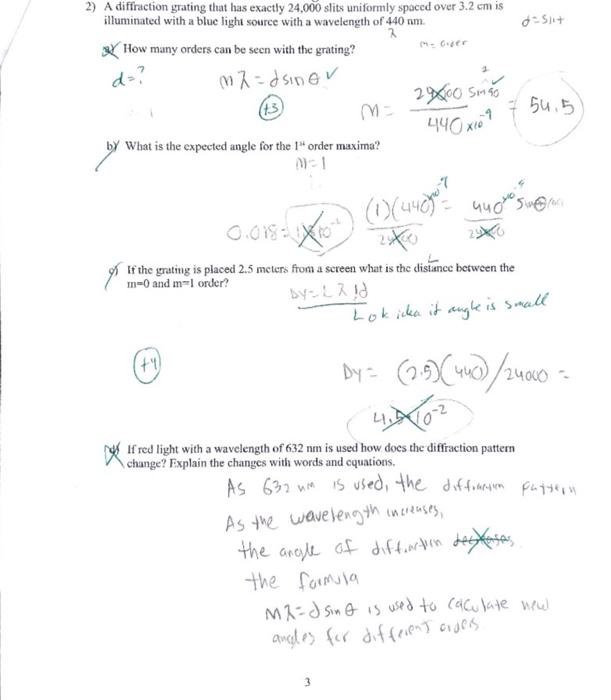 2) A diffraction grating that has exactly 24,000 slits uniformly spaced over 3.2 cm is
illuminated with a blue light source with a wavelength of 440 nm.
λ
d=slit
m=order
a) How many orders can be seen with the grating?
d=?
mλ = d sin θ ✓
+3
m = 24000 sin 90 / 440 x10⁻⁹ = 54.5
b) What is the expected angle for the 1st order maxima?
m=1
(1)(440) = 440 sin θ
24000
0.018 =
c) If the grating is placed 2.5 meters from a screen what is the distance between the
L
m=0 and m=1 order?
Δy = L λ / d
Lok idea if angle is small
+4
Δy = (2.5)(440)/24000 =
4.5x10⁻²
d) If red light with a wavelength of 632 nm is used how does the diffraction pattern
change? Explain the changes with words and equations.
As 632 nm is used, the diffraction pattern
As the wavelength increases,
the angle of diffraction decreases
the formula
mλ = d sin θ is used to caculate new
angles for different orders
3